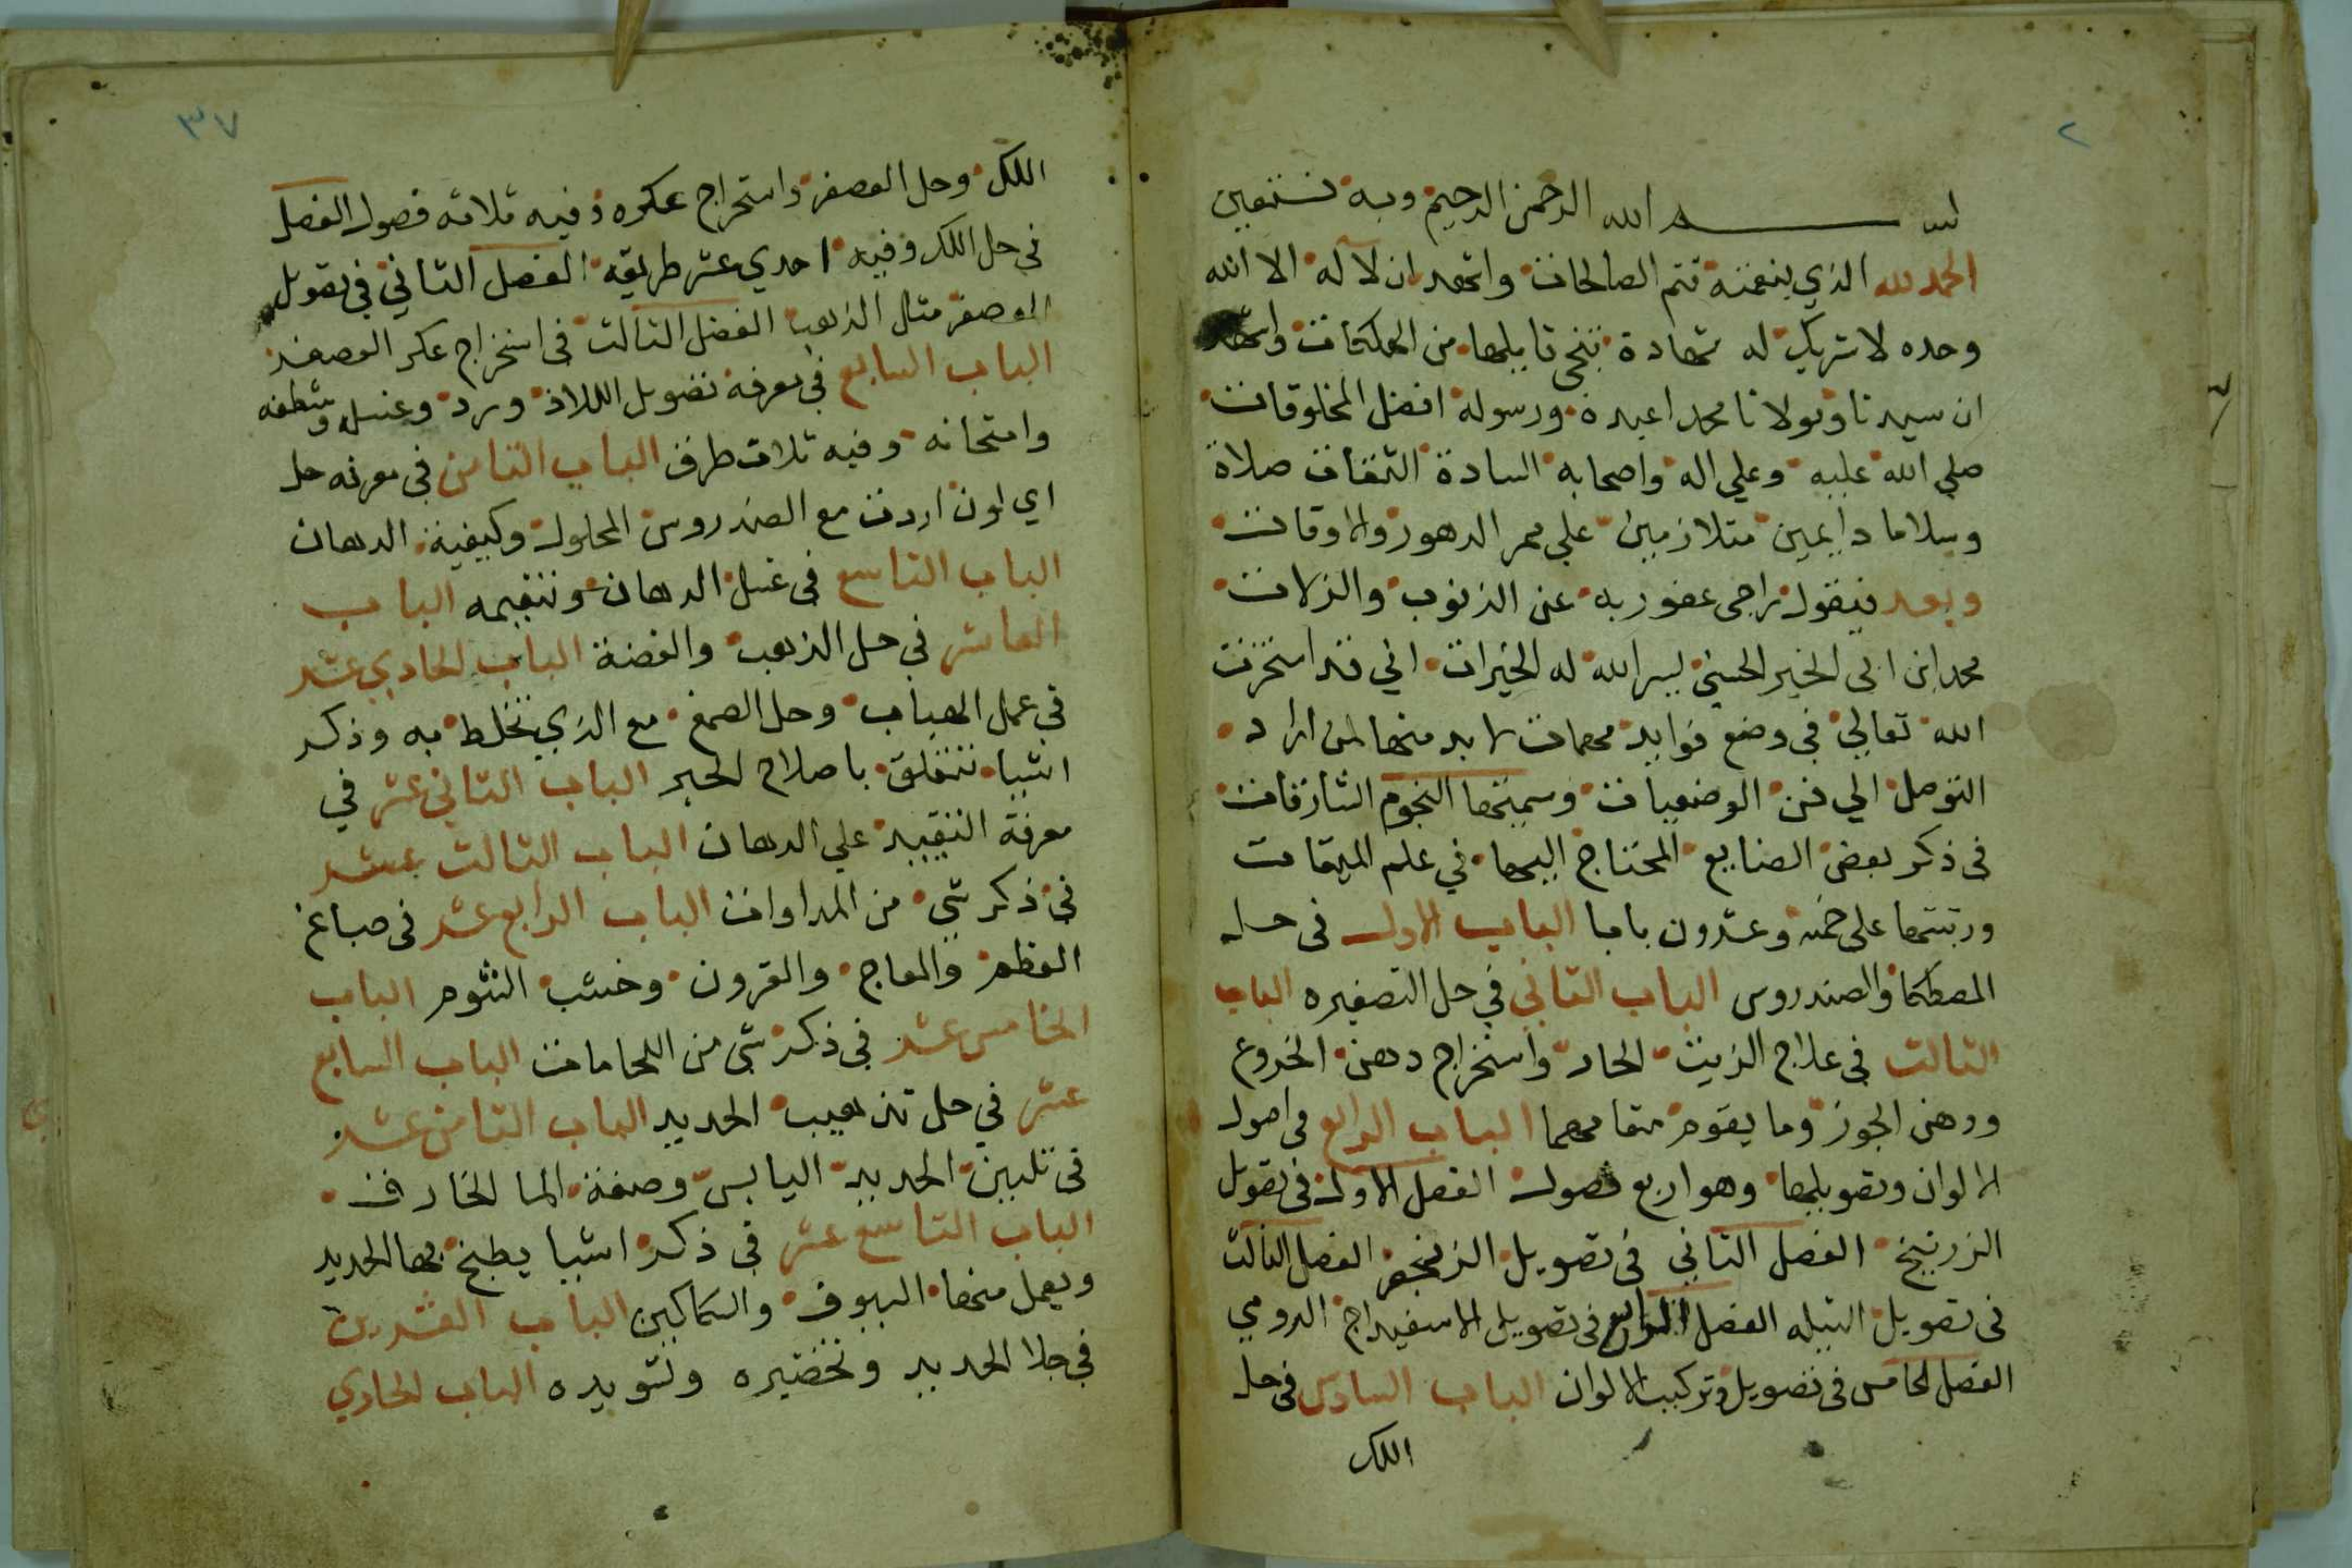 ٢
بسم الله الرحمن الرحيم وبه نستعين
الحمد لله الذي بنعمته تتم الصالحات واشهد ان لا اله الا الله
وحده لا شريك له شهادة تنجي قايلها من الهلكات واشهد
ان سيدنا ومولانا محمدا عبده ورسوله افضل المخلوقات
صلي الله عليه وعلي اله واصحابه السادة الثقات صلاة
وسلاما دايمين متلازمين علي ممر الدهور والاوقات
وبعد فيقول راجي عفو ربه عن الذنوب والزلات
محمد ابن ابي الخير الحسني يسر الله له الخيرات اني قد استخرت
الله تعالي في وضع فوايد مهمات لا بد منها لمن اراد
التوصل الي فن الوضعيات وسميتها النجوم الشارقات
في ذكر بعض الصنايع المحتاج اليها في علم الميقات
ورتبتها علي خمسة وعشرون بابا الباب الاول في حل
المصطكا والصندروس الباب الثاني في حل التصفيره الباب
الثالث في علاج الزيت الحار واستخراج دهن الخروع
ودهن الجوز وما يقوم مقامهما الباب الرابع في اصول
الالوان وتصويلها وهو اربع فصول الفصل الاول في تصويل
الزرنيخ الفصل الثاني في تصويل الزنجفر الفصل الثالث
في تصويل النيله الفصل الرابع في تصويل الاسفيداج الرومي
الفصل الخامس في تصويل وتركيب الالوان الباب السادس في حل
اللك
٣٧
اللك وحل العصفر واستخراج عكره وفيه ثلاثه فصول الفصل
في حل اللك وفيه احدي عشر طريقه الفصل الثاني في تصويل
العصفر مثال الذهب الفصل الثالث في استخراج عكر العصفر
الباب السابع في معرفة تصويل اللازورد وغسله وشطفه
وامتحانه وفيه ثلاث طرف الباب الثامن في معرفه حل
اي لون اردت مع الصندروس المحلول وكيفية الدهان
الباب التاسع في غسل الدهان وتنقيمه الباب
العاشر في حل الذهب والفضة الباب الحادي عشر
في عمل الهباب وحل الصمغ مع الذي تخلط به وذكر
اشيا تتعلق باصلاح الحبر الباب الثاني عشر في
معرفة التقييد علي الدهان الباب الثالث عشر
في ذكر شي من المداوات الباب الرابع عشر في صباغ
العظم والعاج والقرون وخشب الشوم الباب
الخامس عشر في ذكر شي من اللحامات الباب السابع
عشر في حل تذهيب الحديد الباب الثامن عشر
في تليين الحديد اليابس وصفة الما الخارف
الباب التاسع عشر في ذكر اشيا يطبخ بها الحديد
ويعمل منها السيوف والسكاكين الباب العشرين
في جلا الحديد وتخضيره وتسويده الباب الحادي